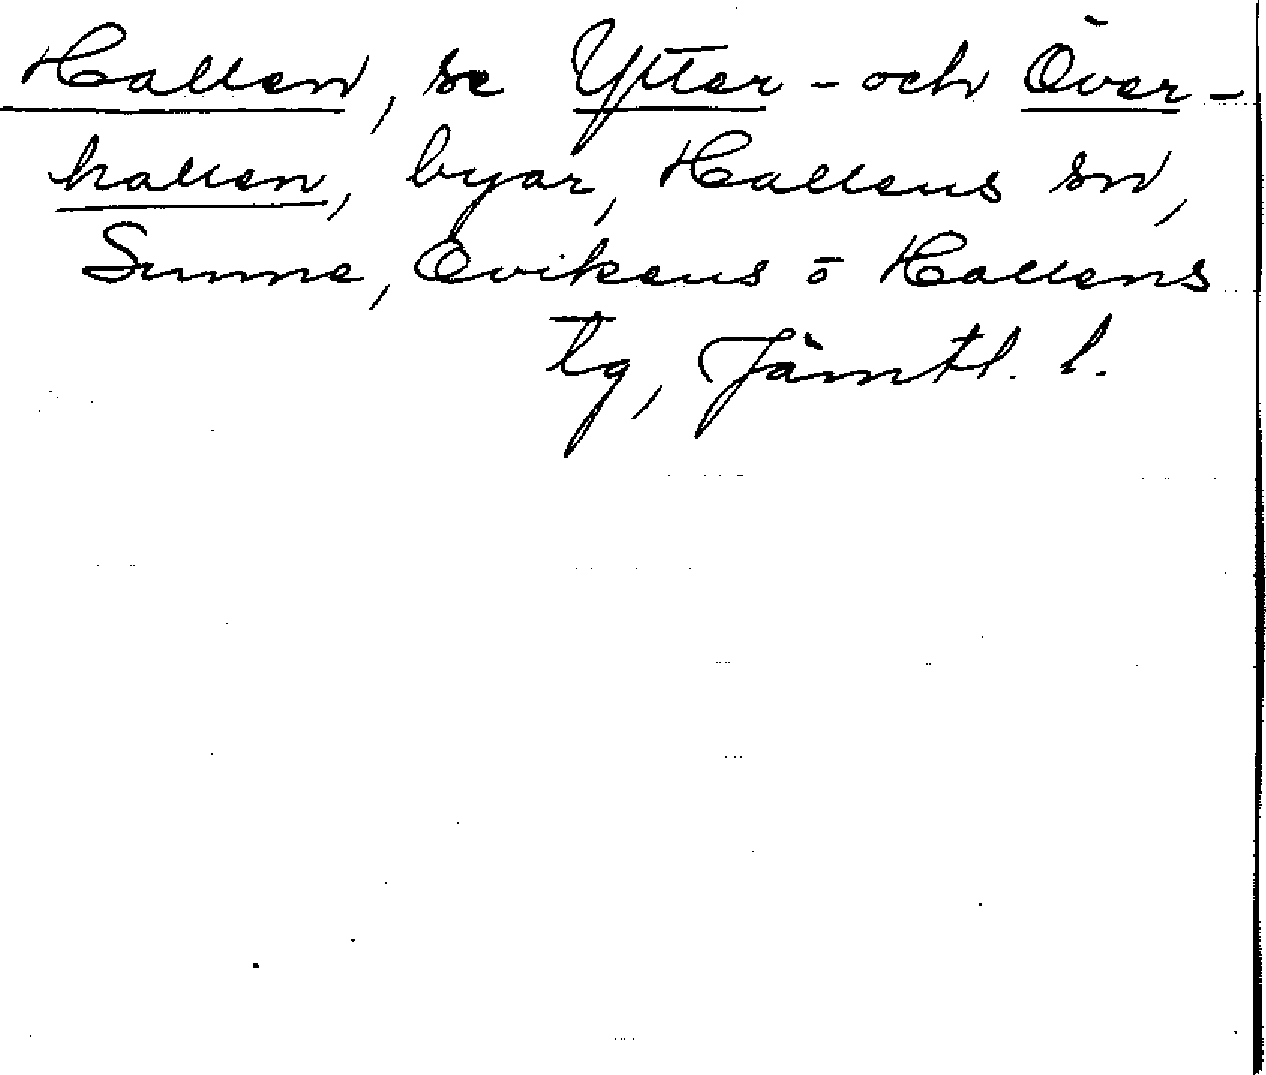 Hallen, se Ytter- och Över-
hallen, byar, Hallens sn,
Sunne, Ovikens o Hallens
tg, Jämtl. l.